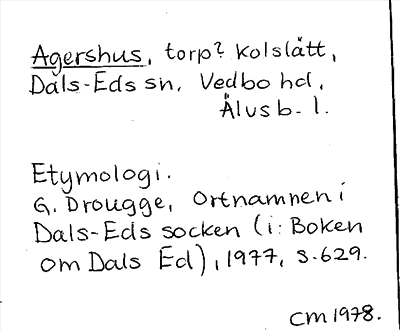 Agershus, torp? Kolslätt,
Dals-Eds sn, Vedbo hd,
Älvsb. l.
Etymologi.
G. Drougge, Ortnamnen i
Dals-Eds socken (i: Boken
om Dals Ed), 1977, s. 629.
CM 1978.